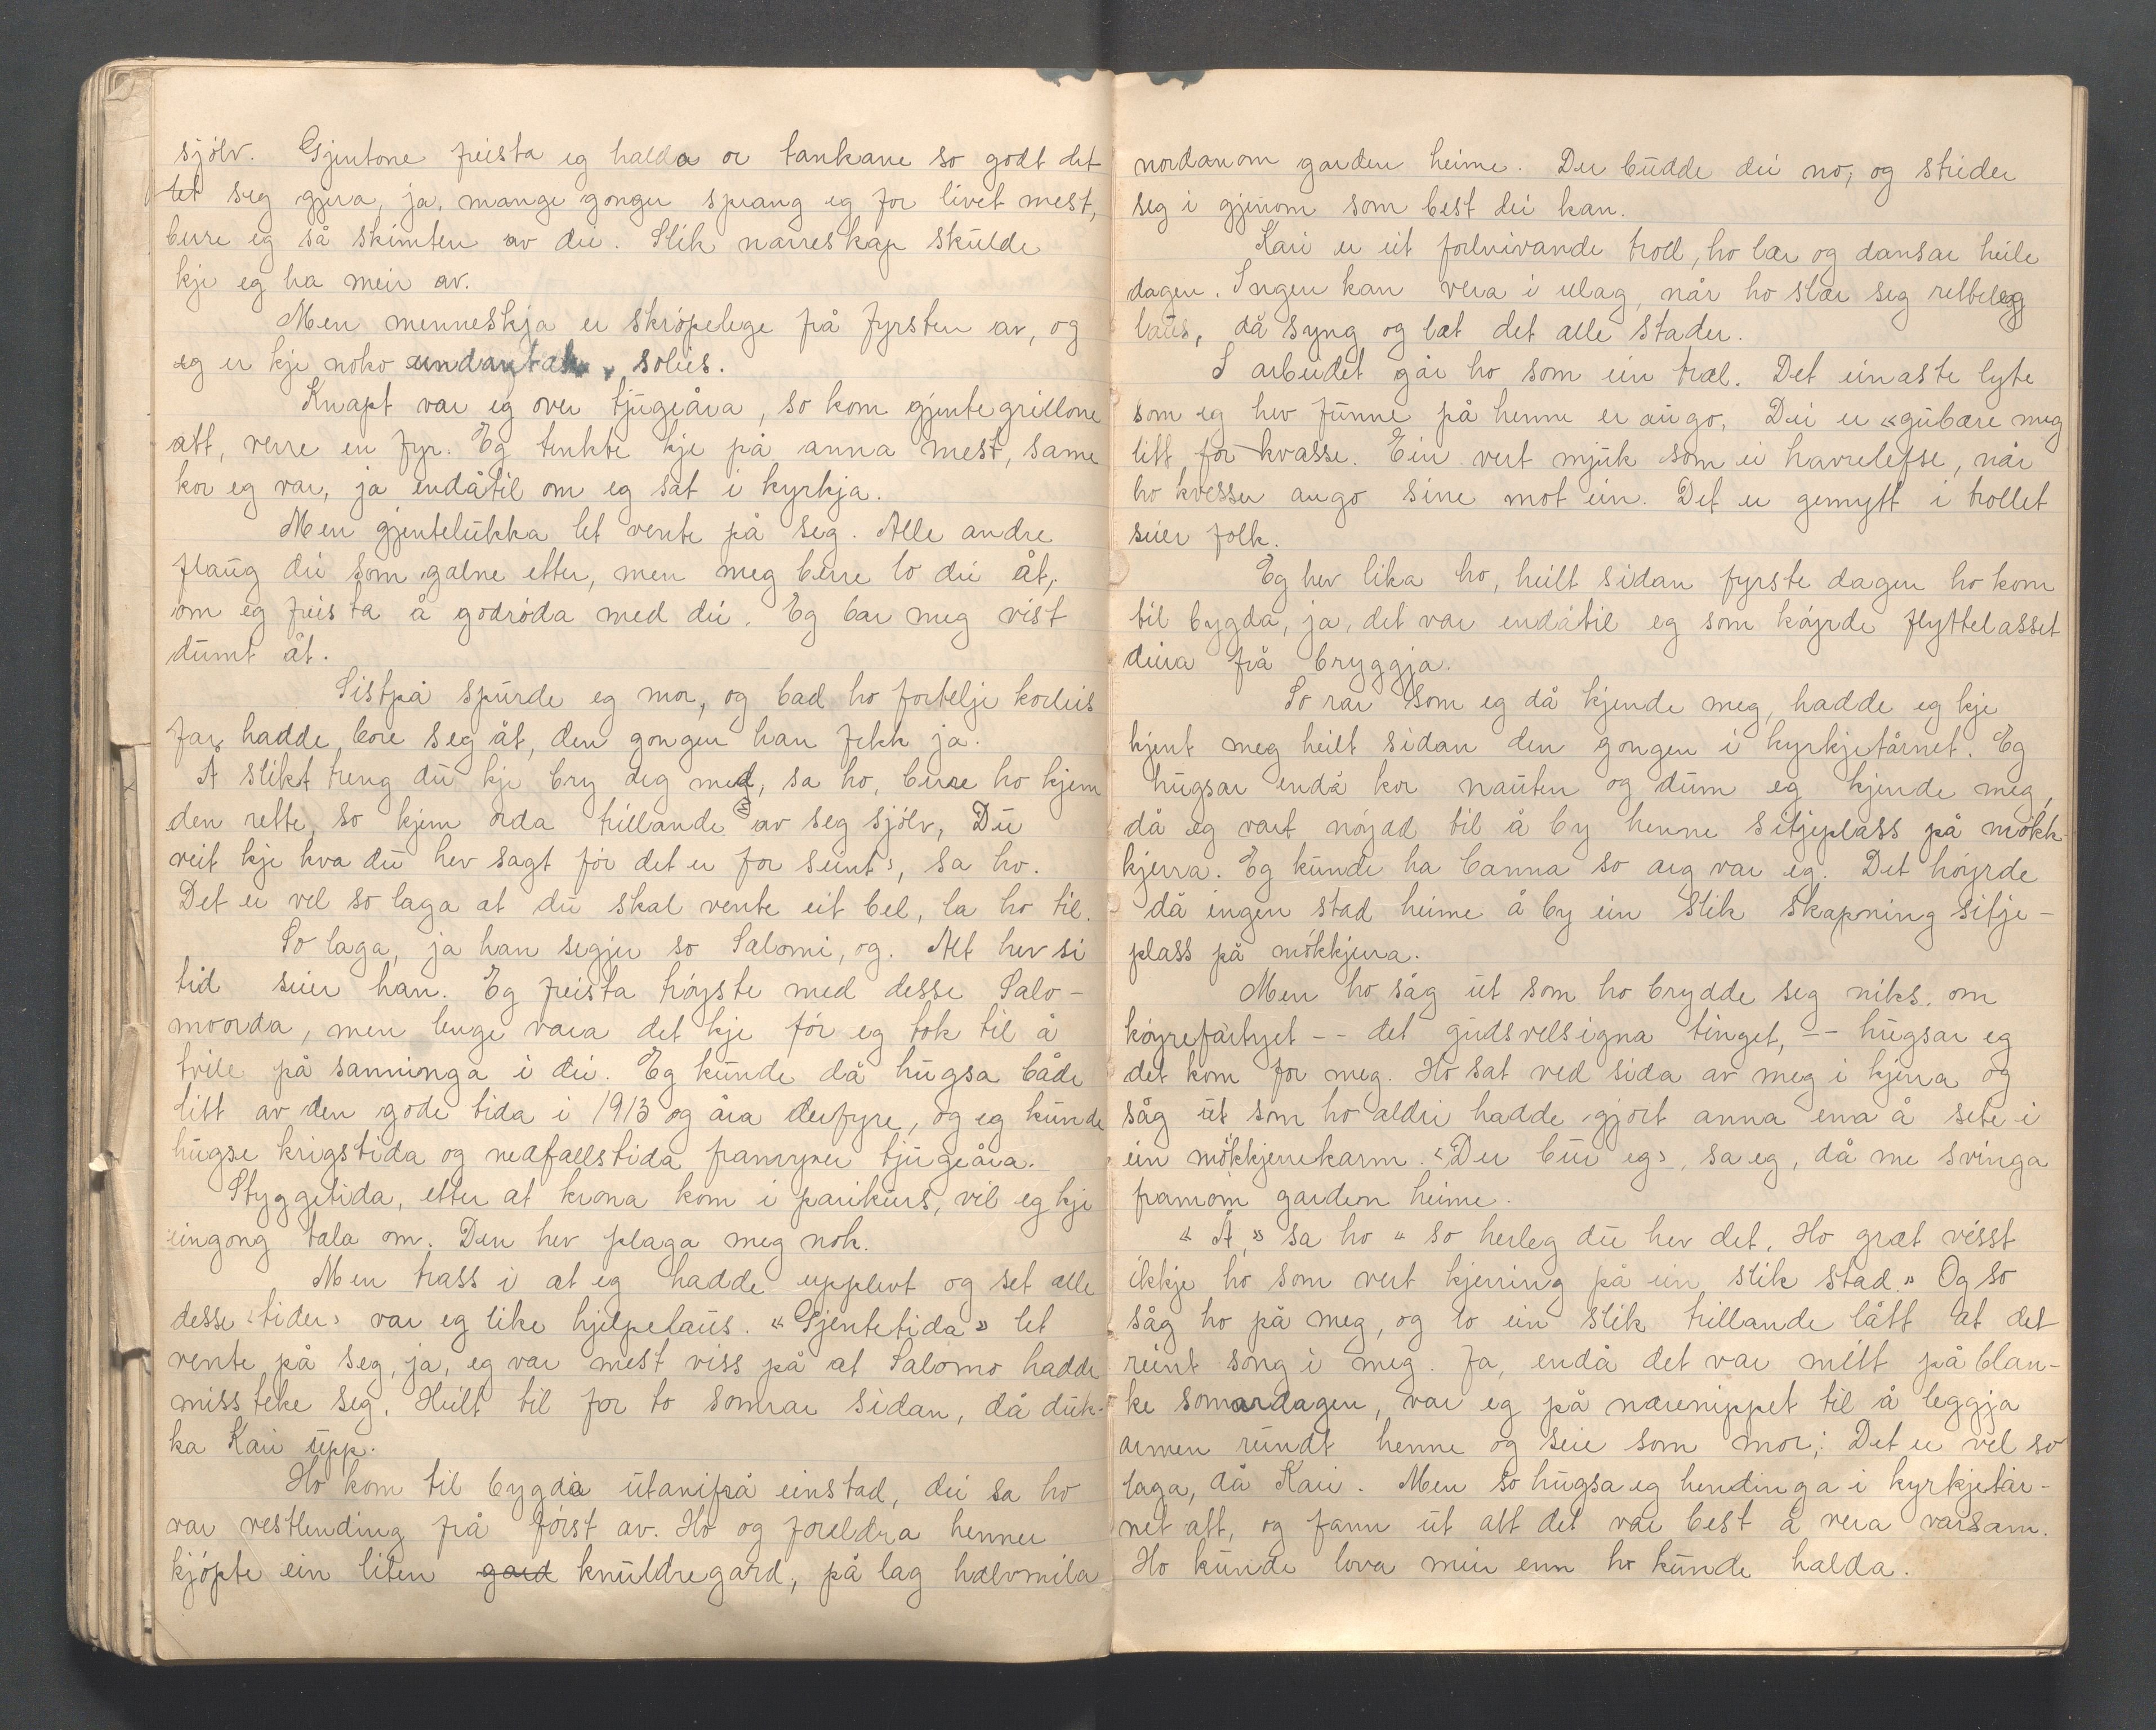 sjölv. Gjentone freista eg halda or tankane so godt det
let seg gjera, ja, mange gonger sprang eg for livet mest,
berre eg så skimten av dei. Slik narreskap skulde
kje eg ha meir av.
Men menneskja er skröpelege frå fyrsten av, og
eg er kje noko undantak, soleis.
Knapt var eg over tjugeåra, so kom gjentegrillone
att, verre en fyr. Eg tenkte kje på anna mest, same
kor eg var, ja endåtil om eg sat i kyrkja.
Men gjentelukka let vente på seg. Alle andre
flaug dei som galne etter, men meg berre lo dei åt,
om eg freista å godröda med dei. Eg bar meg vist
dumt åt.
Sistpå spurde eg mor, og bad ho fortelje korleis
far hadde bore seg åt, den gongen han fekk ja.
Å slikt treng du kje bry deg med, sa ho, berre ho kjem
den rette, so kjem orda trillande av seg sjölv, Du
veit kje hva du hev sagt för det er for seint, sa ho.
Det er vel so laga at du skal vente eit bel, la ho til.
So laga, ja han segjer so Salomi, og. Alt hev si
tid seier han. Eg freista tröyste med desse Salo-
moorda, men lenge vara det kje för eg tok til å
tvile på sanninga i dei. Eg kunde då hugsa både
litt av den gode tida i 1913 og åra derfyre, og eg kunde
hugse krigstida og nedfallstida framyver tjugeåra.
Styggetida, etter at krona kom i parikurs, vil eg kje
eingong tala om. Den hev plaga meg nok.
Men trass i at eg hadde upplevt og set alle
desse ‹tider› var eg like hjelpelaus. «Gjentetida» let
vente på seg, ja, eg var mest viss på at Salomo hadde
missteke seg. Heilt til for to somrar sidan, då duk-
ka Kari upp.
Ho kom til bygda utanifrå einstad, dei sa ho
var vestlending frå först av. Ho og foreldra henner
kjöpte ein liten gard knuldregard, på lag halvmila
nordanom garden heime. Der budde dei no, og strider
seg i gjenom som best dei kan.
Kari er eit fordrivande trod, ho lær og dansar heile
dagen. Ingen kan vera i ulag, når ho slær seg retteleg
laus, då syng og læt det alle stader.
I arbeidet går ho som ein træl. Det einaste lyte
som eg hev funne på henne er augo. Dei er «gubære meg
litt for kvasse. Ein vert mjuk som ei havrelefse, når
ho kvesser augo sine mot ein. Det er gemytt i trollet
seier folk.
Eg hev lika ho, heilt sidan fyrste dagen ho kom
til bygda, ja, det var endåtil eg som köyrde flyttelasset
deira frå bryggja.
So rar som eg då kjende meg, hadde eg kje
kjent meg heilt sidan den gongen i kyrkjetårnet. Eg
hugsar endå kor nauten og dum eg kjende meg,
då eg vart nöydd til å by henne sitjeplass på mökk-
kjerra. Eg kunde ha banna so arg var eg. Det höyrde
då ingen stad heime å by ein slik skapning sitje-
plass på mökkjerra.
Men ho såg ut som ho brydde seg niks. om
köyrefartyet -- det gudsvelsigna tinget, -- hugsar eg
det kom for meg. Ho sat ved sida av meg i kjerra og
såg ut som ho aldri hadde gjort anna enn å sete i
ein mökkjerrekarm. ‹Der bur eg›, sa eg, då me svinga
framom garden heime.
« Å,» sa ho « so herleg du hev det. Ho græt visst
ikkje ho som vert kjerring på ein slik stad.» Og so
såg ho på meg, og lo ein slik trillande lått at det
reint song i meg. Ja, endå det var mitt på blan-
ke somardagen, var eg på nærenippet til å leggja
armen rundt henne og seie som mor: Det er vel so
laga, då Kari. Men so hugsa eg hendinga i kyrkjetår-
net att, og fann ut att det var best å vera varsam.
Ho kunde lova meir enn ho kunde halda.